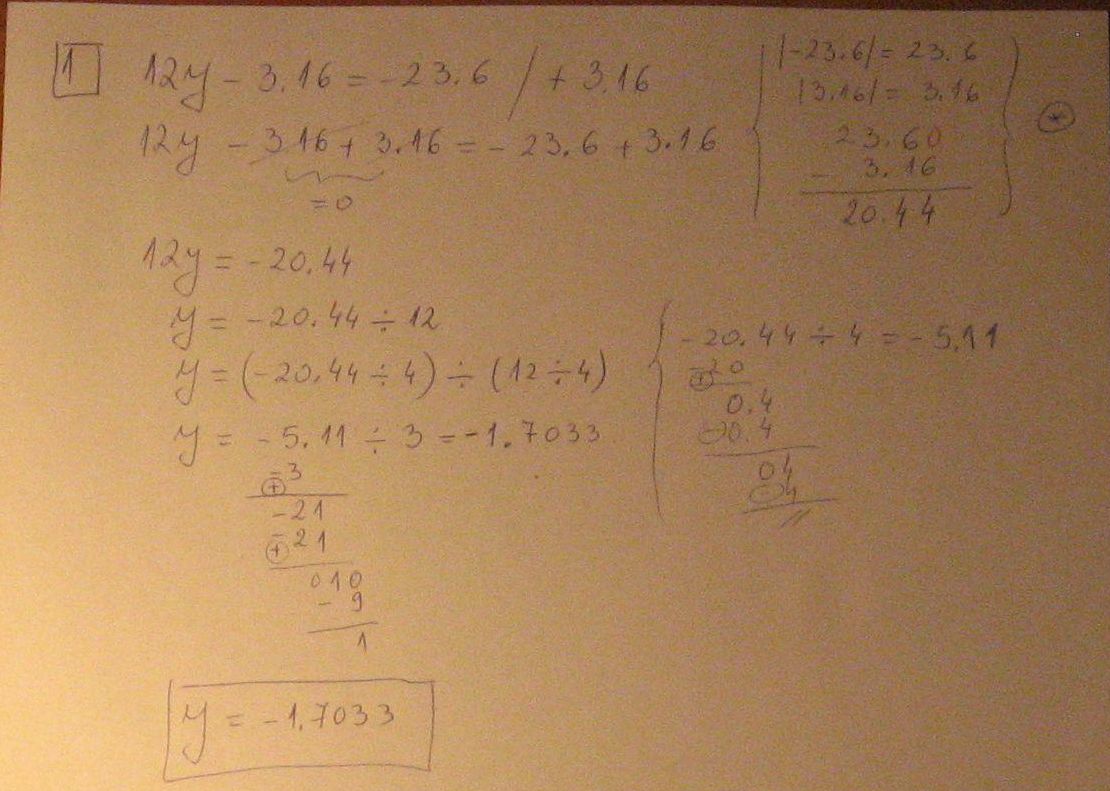 1
12y - 3.16 = -23.6 / + 3.16
12y - 3.16 + 3.16 = -23.6 + 3.16
= 0
12y = -20.44
y = -20.44 ÷ 12
y = (-20.44 ÷ 4) ÷ (12 ÷ 4)
y = -5.11 ÷ 3 = -1.7033
-3
+
-21
-21
+
010
- 9
1
y = -1.7033
|-23.6| = 23.6
|3.16| = 3.16
23.60
- 3.16
20.44
*
-20.44 ÷ 4 = -5.11
-20
+
0.4
-0.4
04
-4
//